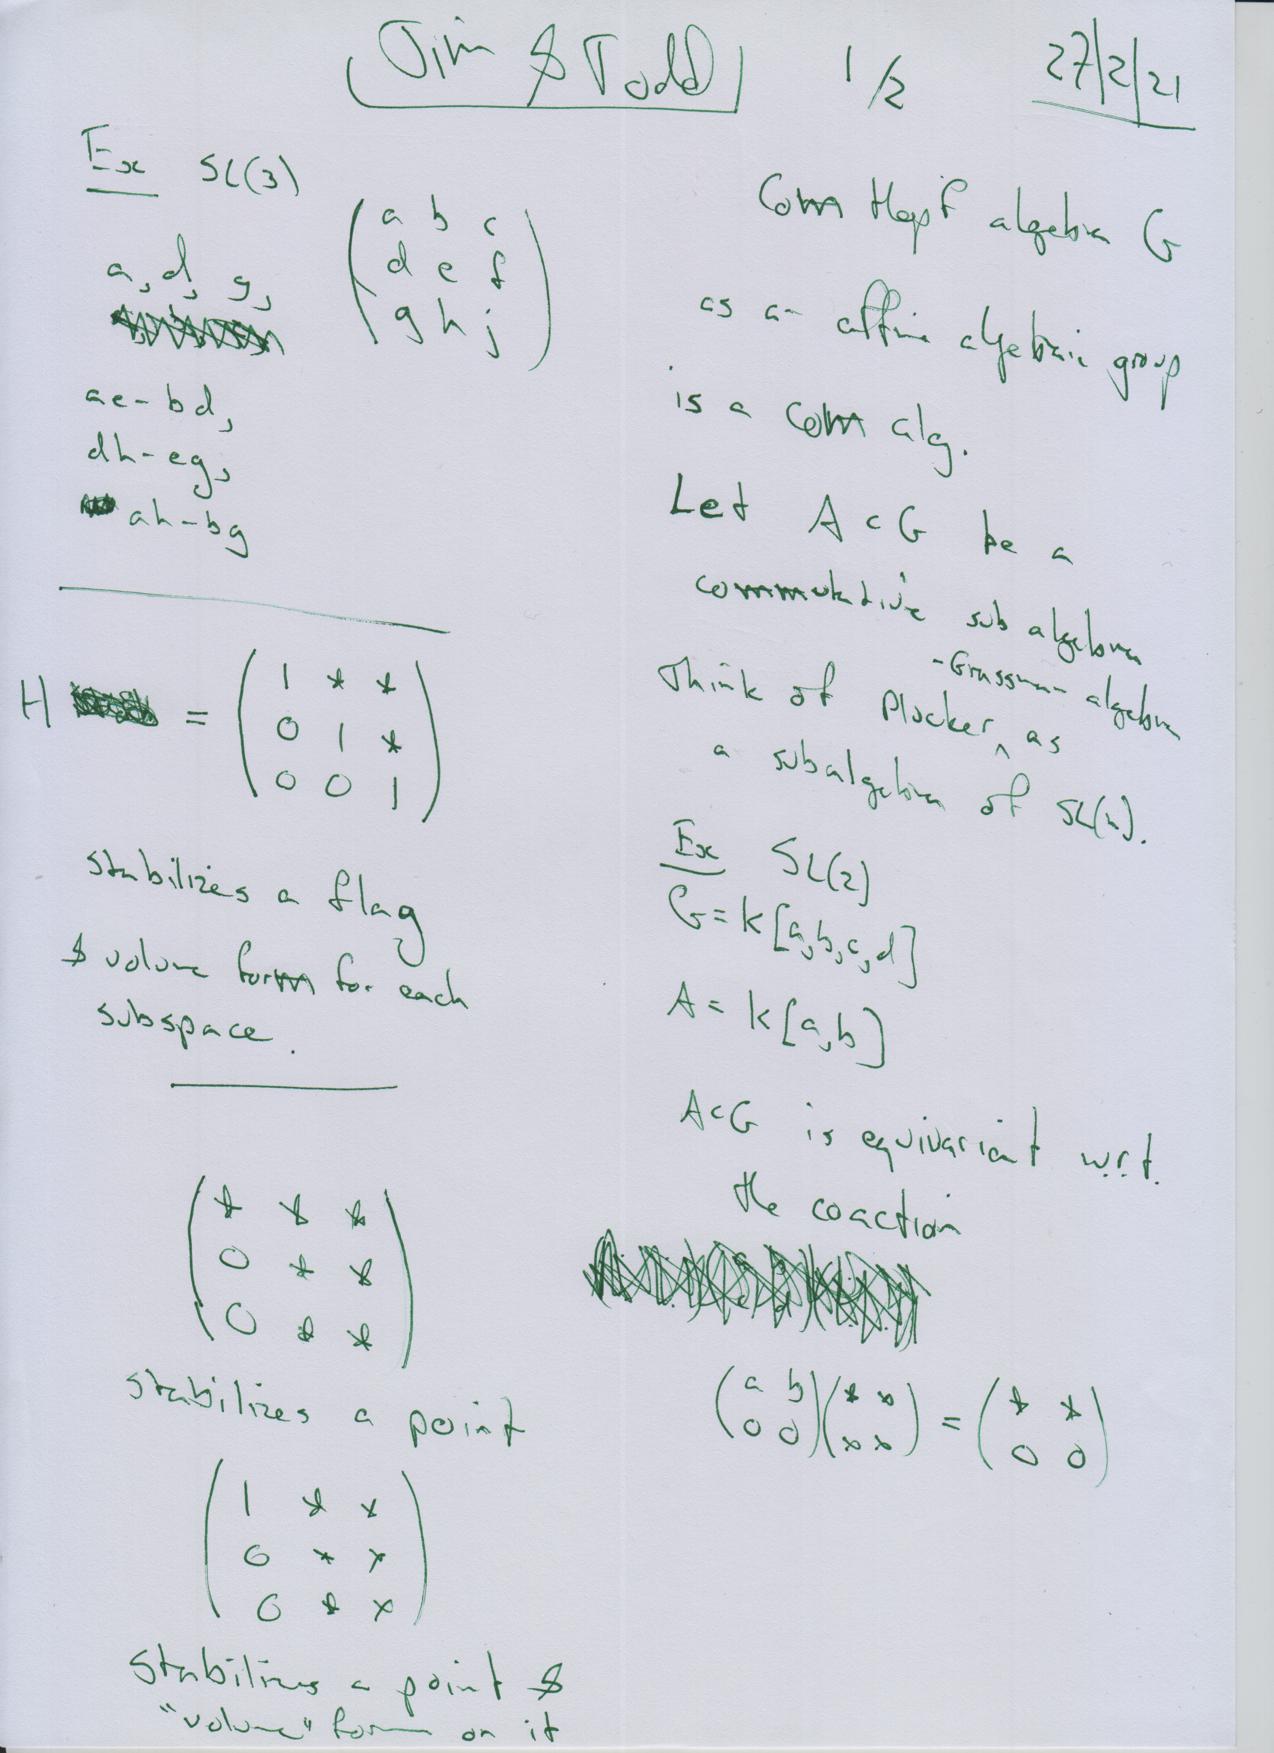 Jim & Todd 1/2 27/2/21
Ex SL(3)
a, d, g,
ae-bd,
dh-eg,
ah-bg
( a b c
d e f
g h j )
H = ( 1 * *
0 1 *
0 0 1 )
stabilizes a flag
& volume form for each
subspace.
( * * *
0 * *
0 * * )
stabilizes a point
( 1 * *
0 * *
0 * * )
stabilizes a point &
"volume" form on it
Com Hopf algebra G
as an affine algebraic group
is a com alg.
Let A ⊂ G be a
commutative sub algebra
Think of Plucker -Grassman algebra as
a subalgebra of SL(n).
Ex SL(2)
G = k[a,b,c,d]
A = k[a,b]
A⊂G is equivariant w.r.t.
the coaction
( a b
0 0 ) ( * *
* * ) = ( * *
0 0 )